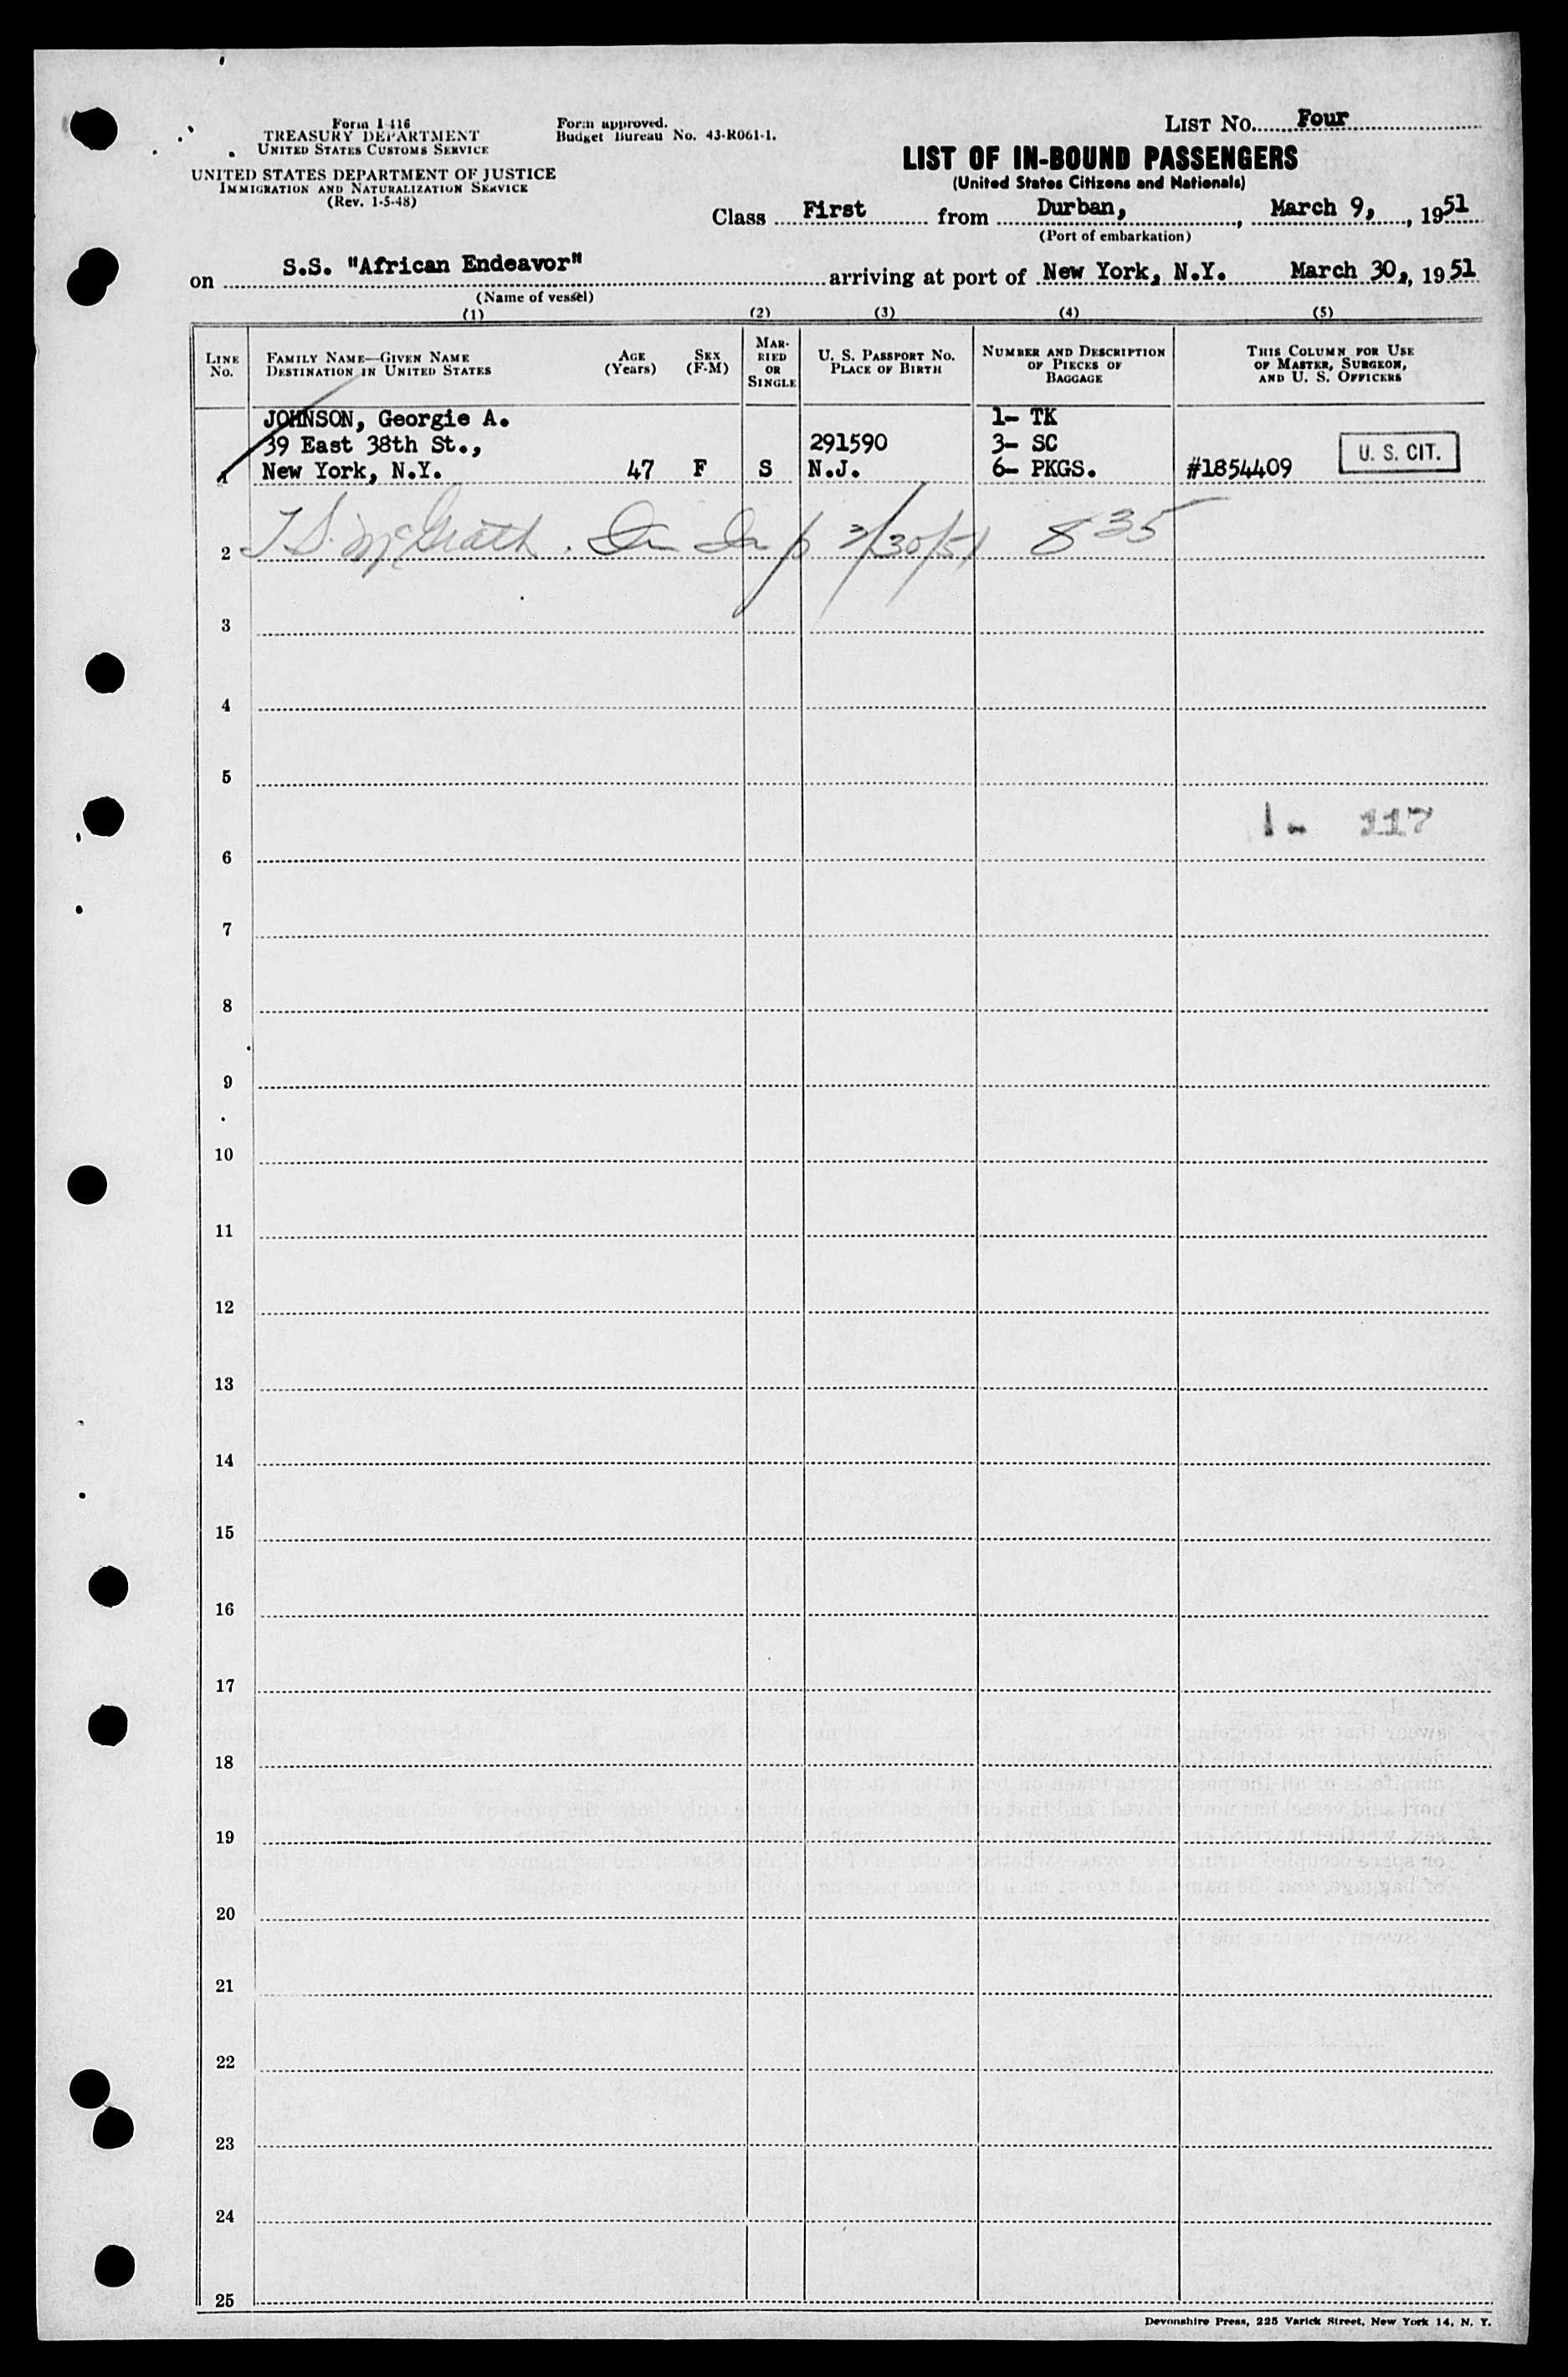 Form I-416
TREASURY DEPARTMENT
UNITED STATES CUSTOMS SERVICE
UNITED STATES DEPARTMENT OF JUSTICE
IMMIGRATION AND NATURALIZATION SERVICE
(Rev. 1-5-48)
Form approved.
Budget Bureau No. 43-R061-1.
LIST No. Four
LIST OF IN-BOUND PASSENGERS
(United States Citizens and Nationals)
Class First from Durban, , March 9, , 1951
(Port of embarkation)
on S.S. "African Endeavor" arriving at port of New York, N.Y. March 30, , 1951
(Name of vessel)
(1) (2) (3) (4) (5)
LINE No.
FAMILY NAME—GIVEN NAME
DESTINATION IN UNITED STATES
AGE (Years)
SEX (F-M)
MARRIED OR SINGLE
U. S. PASSPORT No.
PLACE OF BIRTH
NUMBER AND DESCRIPTION OF PIECES OF BAGGAGE
THIS COLUMN FOR USE OF MASTER, SURGEON, AND U. S. OFFICERS
JOHNSON, Georgie A. 1- TK
39 East 38th St., 291590 3- SC U. S. CIT.
1 New York, N.Y. 47 F S N.J. 6- PKGS. #1854409
2 T S. McGrath 3/30/51 835
3
4
5
1- 117
6
7
8
9
10
11
12
13
14
15
16
17
18
19
20
21
22
23
24
25
Devonshire Press, 225 Varick Street, New York 14, N. Y.